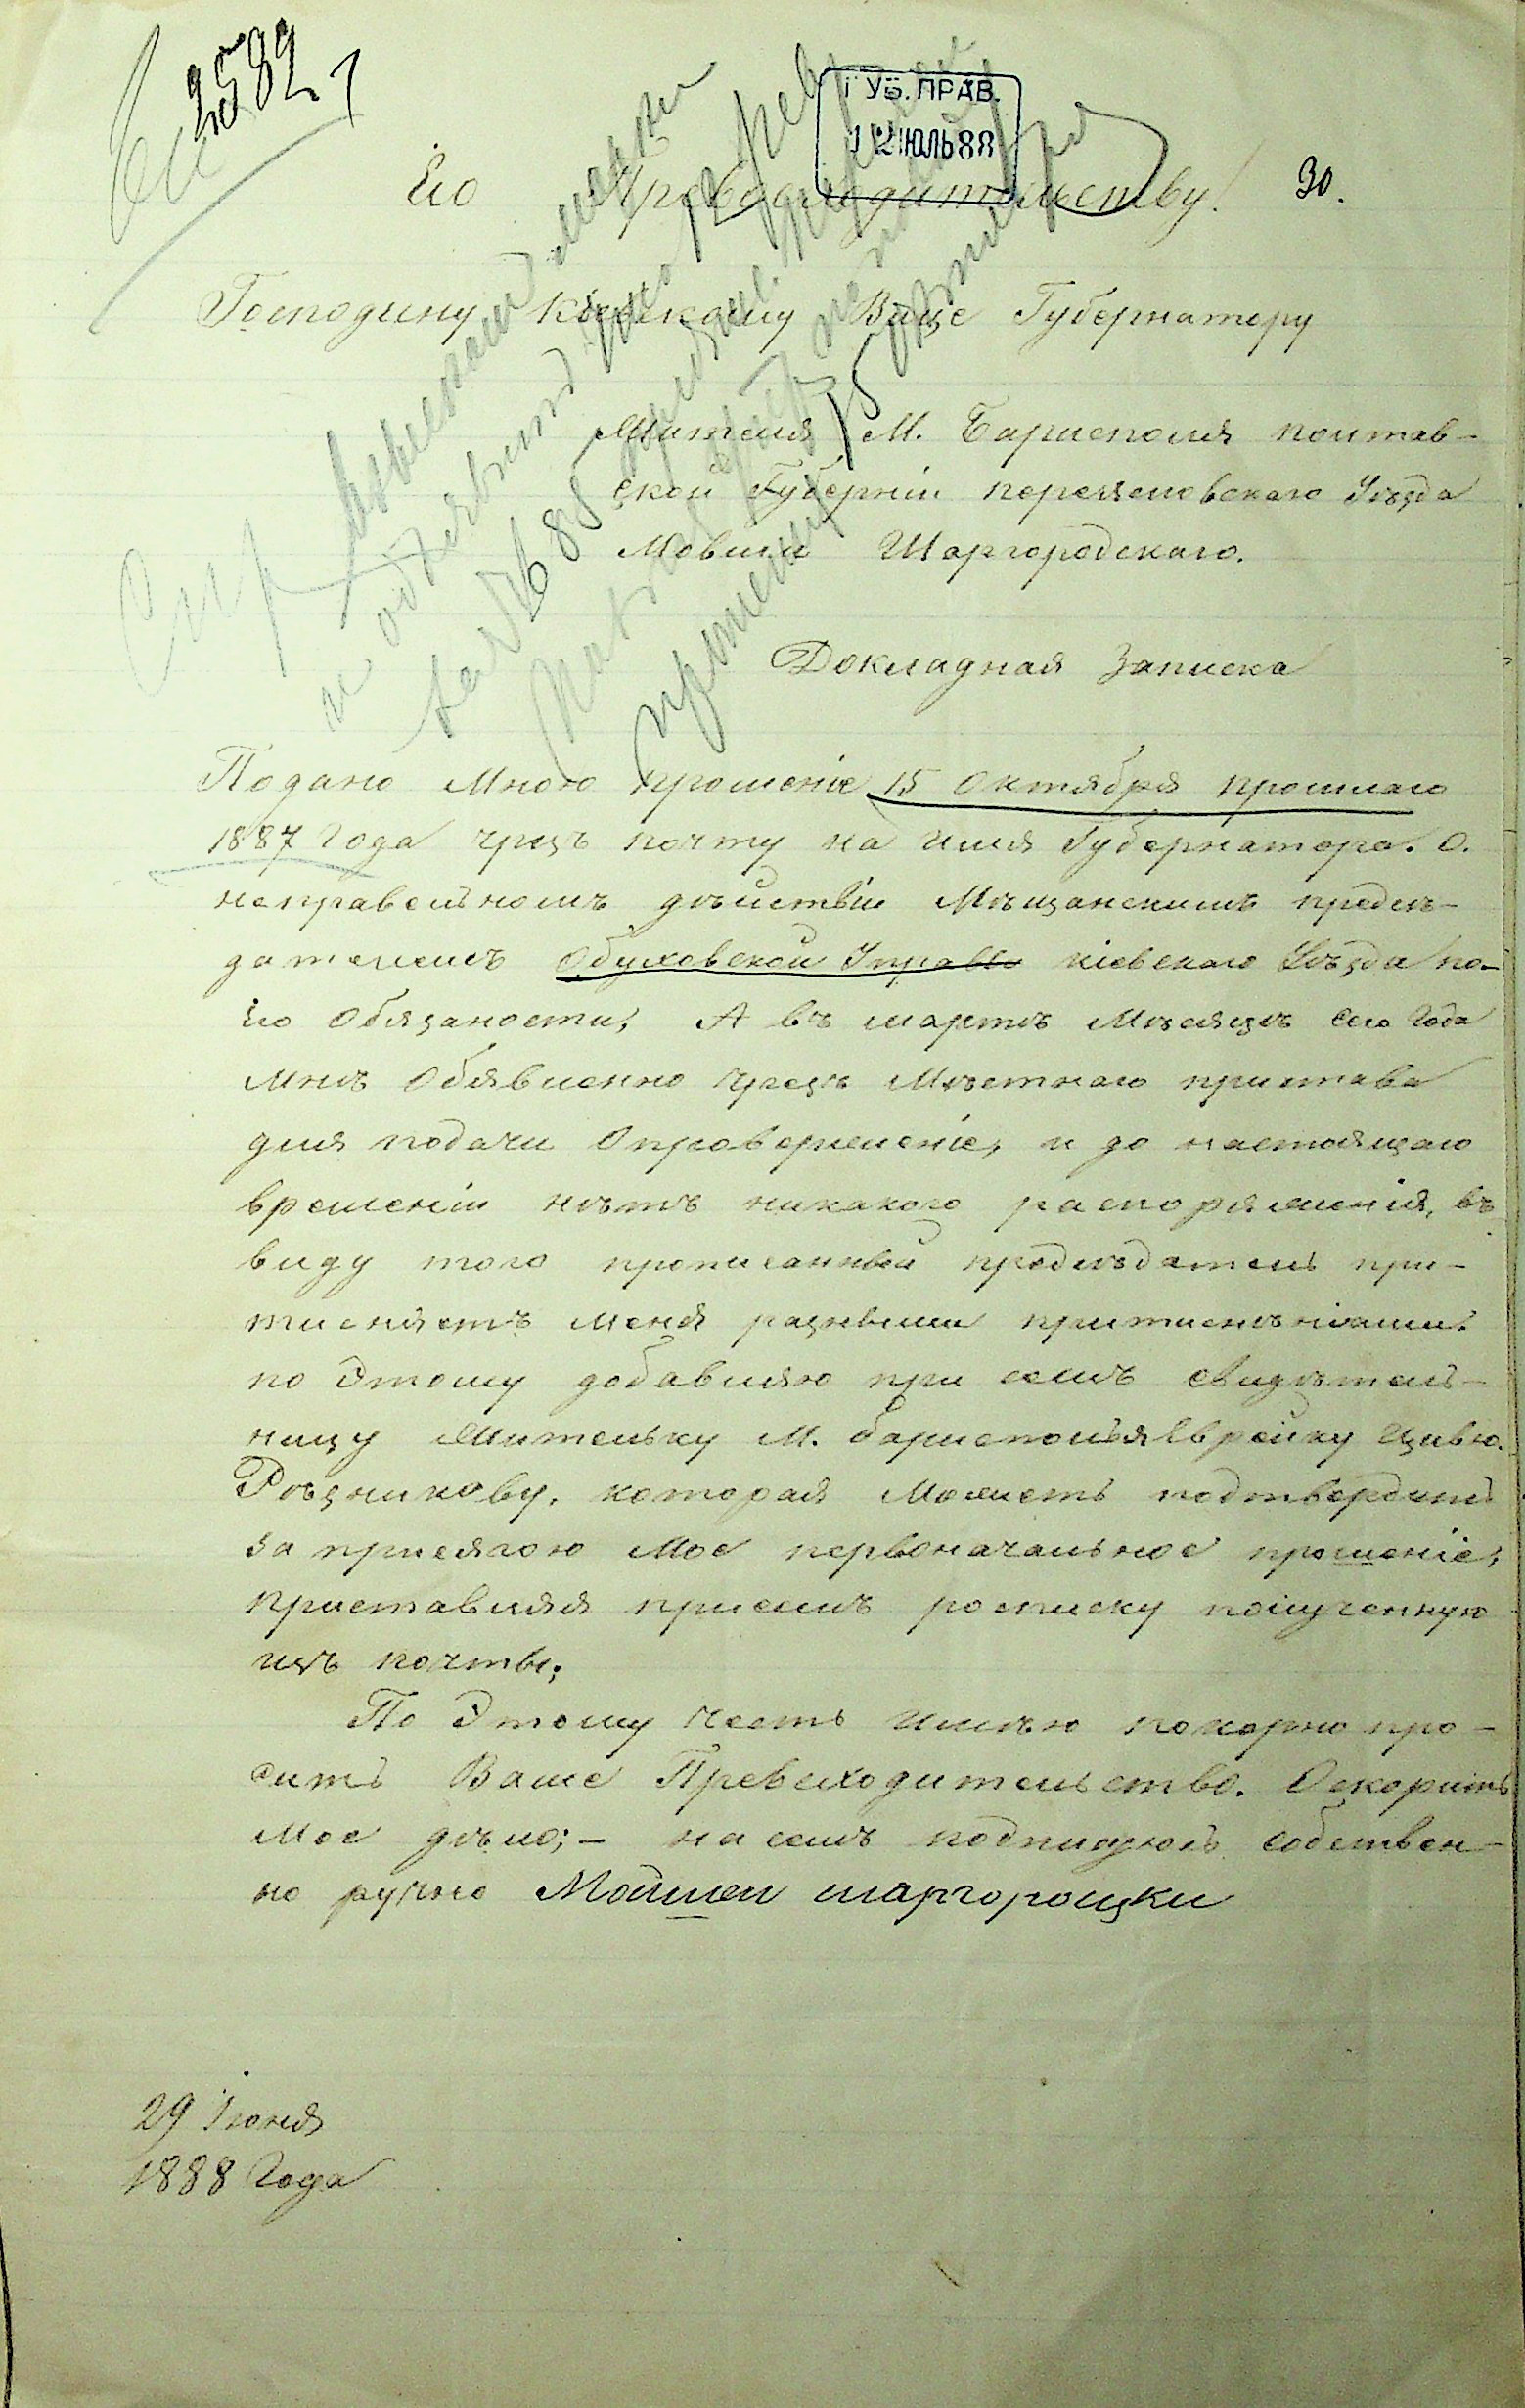 2582
ГУБ. ПРАВ.
12 ИЮЛЬ 88
30.
Его Превосходительству!
Господину Кіевскому Вице Губернатору
Жителя М. Бариополя полтав-
ской Губерніи переяславскаго Уѣзда
Мовши Шаргородскаго.
Докладная Записка
Подано Мною прошеніе 15 октября прошлаго
1887 Года чрезъ почту на имя Губернатора. О.
неправельномъ дѣйствіи Мѣщанскимъ предсѣ-
дателемъ Обуховской Управы кіевскаго Уѣзда по-
Его Обязаности, А въ мартѣ Мѣсяцѣ сего Года
Мнѣ Обявленно чрезъ Мѣстнаго пристава
для подачи Опроверженіе, и до настоящаго
времени нѣтъ никакого распоряженія, въ
виду того прописанный предсѣдатель при-
тисняетъ меня разными притисненіями.
по Этому добавляю при семъ свидѣтель-
ницу Жительку М. бариополя Еврейку Цивю.
Рѣзникову, которая Можетъ подтвердить
за присягою Мое первоначальное прошеніе,
приставляя присемъ росписку полученную
изъ почты;
По Этому Честь Имѣю покорно про-
сить Ваше Превсходительство. Оскорить
Мое дѣло; – на семъ подписуюсь собствен-
но ручно Мойшеи шаргороцки
29 Іюня
1888 Года